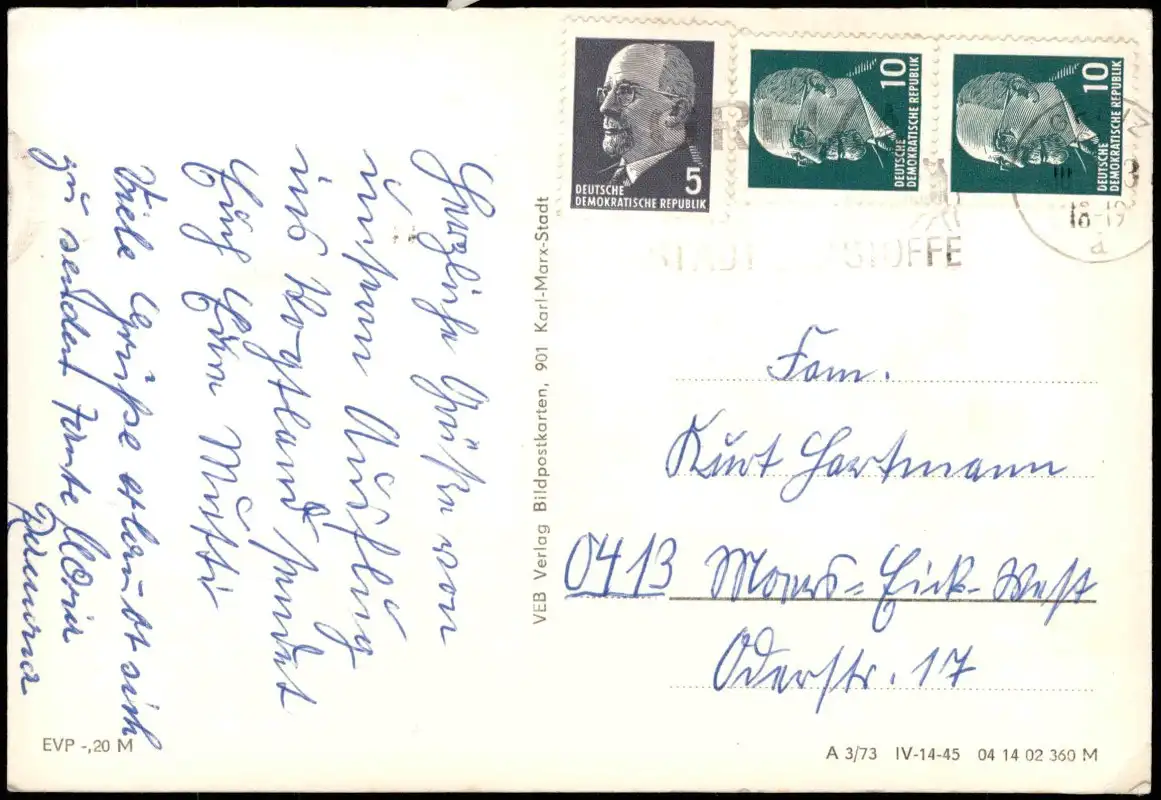 Herzliche Grüße von
unserm Ausflug
ins Vogtland sendet
Euch Eure Mutti
Viele Grüße erlaubt sich
zu senden Tante
VEB Verlag Bildpostkarten, 901 Karl-Marx-Stadt
5
DEUTSCHE
DEMOKRATISCHE REPUBLIK
10
DEUTSCHE
DEMOKRATISCHE REPUBLIK
10
DEUTSCHE
DEMOKRATISCHE REPUBLIK
18-19
a
Fam.
Kurt Hartmann
0413 Moers-Eick-West
Oderstr. 17
EVP -,20 M
A 3/73 IV-14-45 04 14 02 360 M